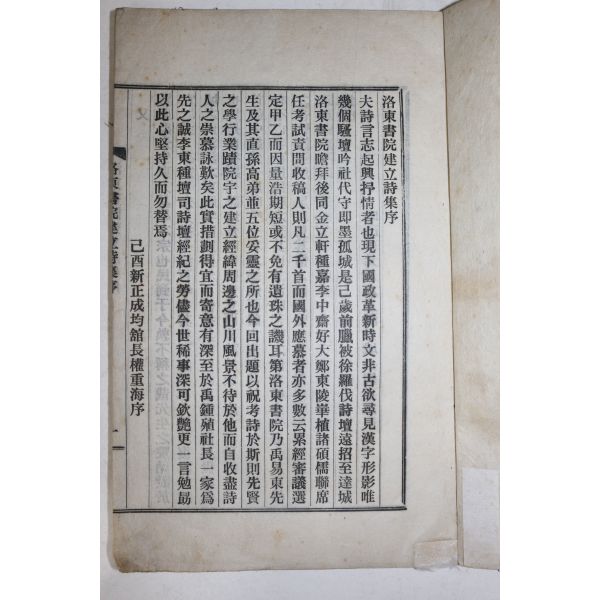 洛東書院建立詩集序
夫詩言志起興抒情者也現下國政革新時文非古欲尋見漢字形影唯
幾個騷壇吟社代守即墨孤城是己歲前臘被徐羅伐詩壇遠招至達城
洛東書院瞻拜後同金立軒種嘉李中齋好大鄭東陵畢植諸碩儒聯席
任考試責問收稿人則凡二千首而國外應慕者亦多數云累經審議選
定甲乙而因量浩期短或不免有遺珠之譏耳第洛東書院乃禹易東先
生及其直孫高弟並五位妥靈之所也今回出題以祝考詩於斯則先賢
之學行業蹟院宇之建立經緯周邊之山川風景不待於他而自收盡詩
人之崇慕詠歎矣此實措劃得宜而寄意有深至於禹鍾殖社長一家爲
先之誠李東種壇司詩壇經紀之勞儘今世稀事深可欽艷更一言勉勗
以此心堅持久而勿替焉
己酉新正成均館長權重海序
洛東書院建立詩集序
一